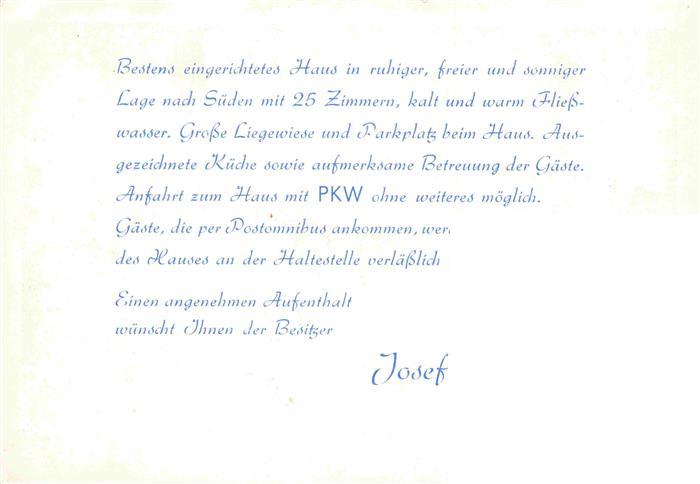 Bestens eingerichtetes Haus in ruhiger, freier und sonniger
Lage nach Süden mit 25 Zimmern, kalt und warm Fließ-
wasser. Große Liegewiese und Parkplatz beim Haus. Aus-
gezeichnete Küche sowie aufmerksame Betreuung der Gäste.
Anfahrt zum Haus mit PKW ohne weiteres möglich.
Gäste, die per Postomnibus ankommen, wer
des Hauses an der Haltestelle verläßlich
Einen angenehmen Aufenthalt
wünscht Ihnen der Besitzer
Josef